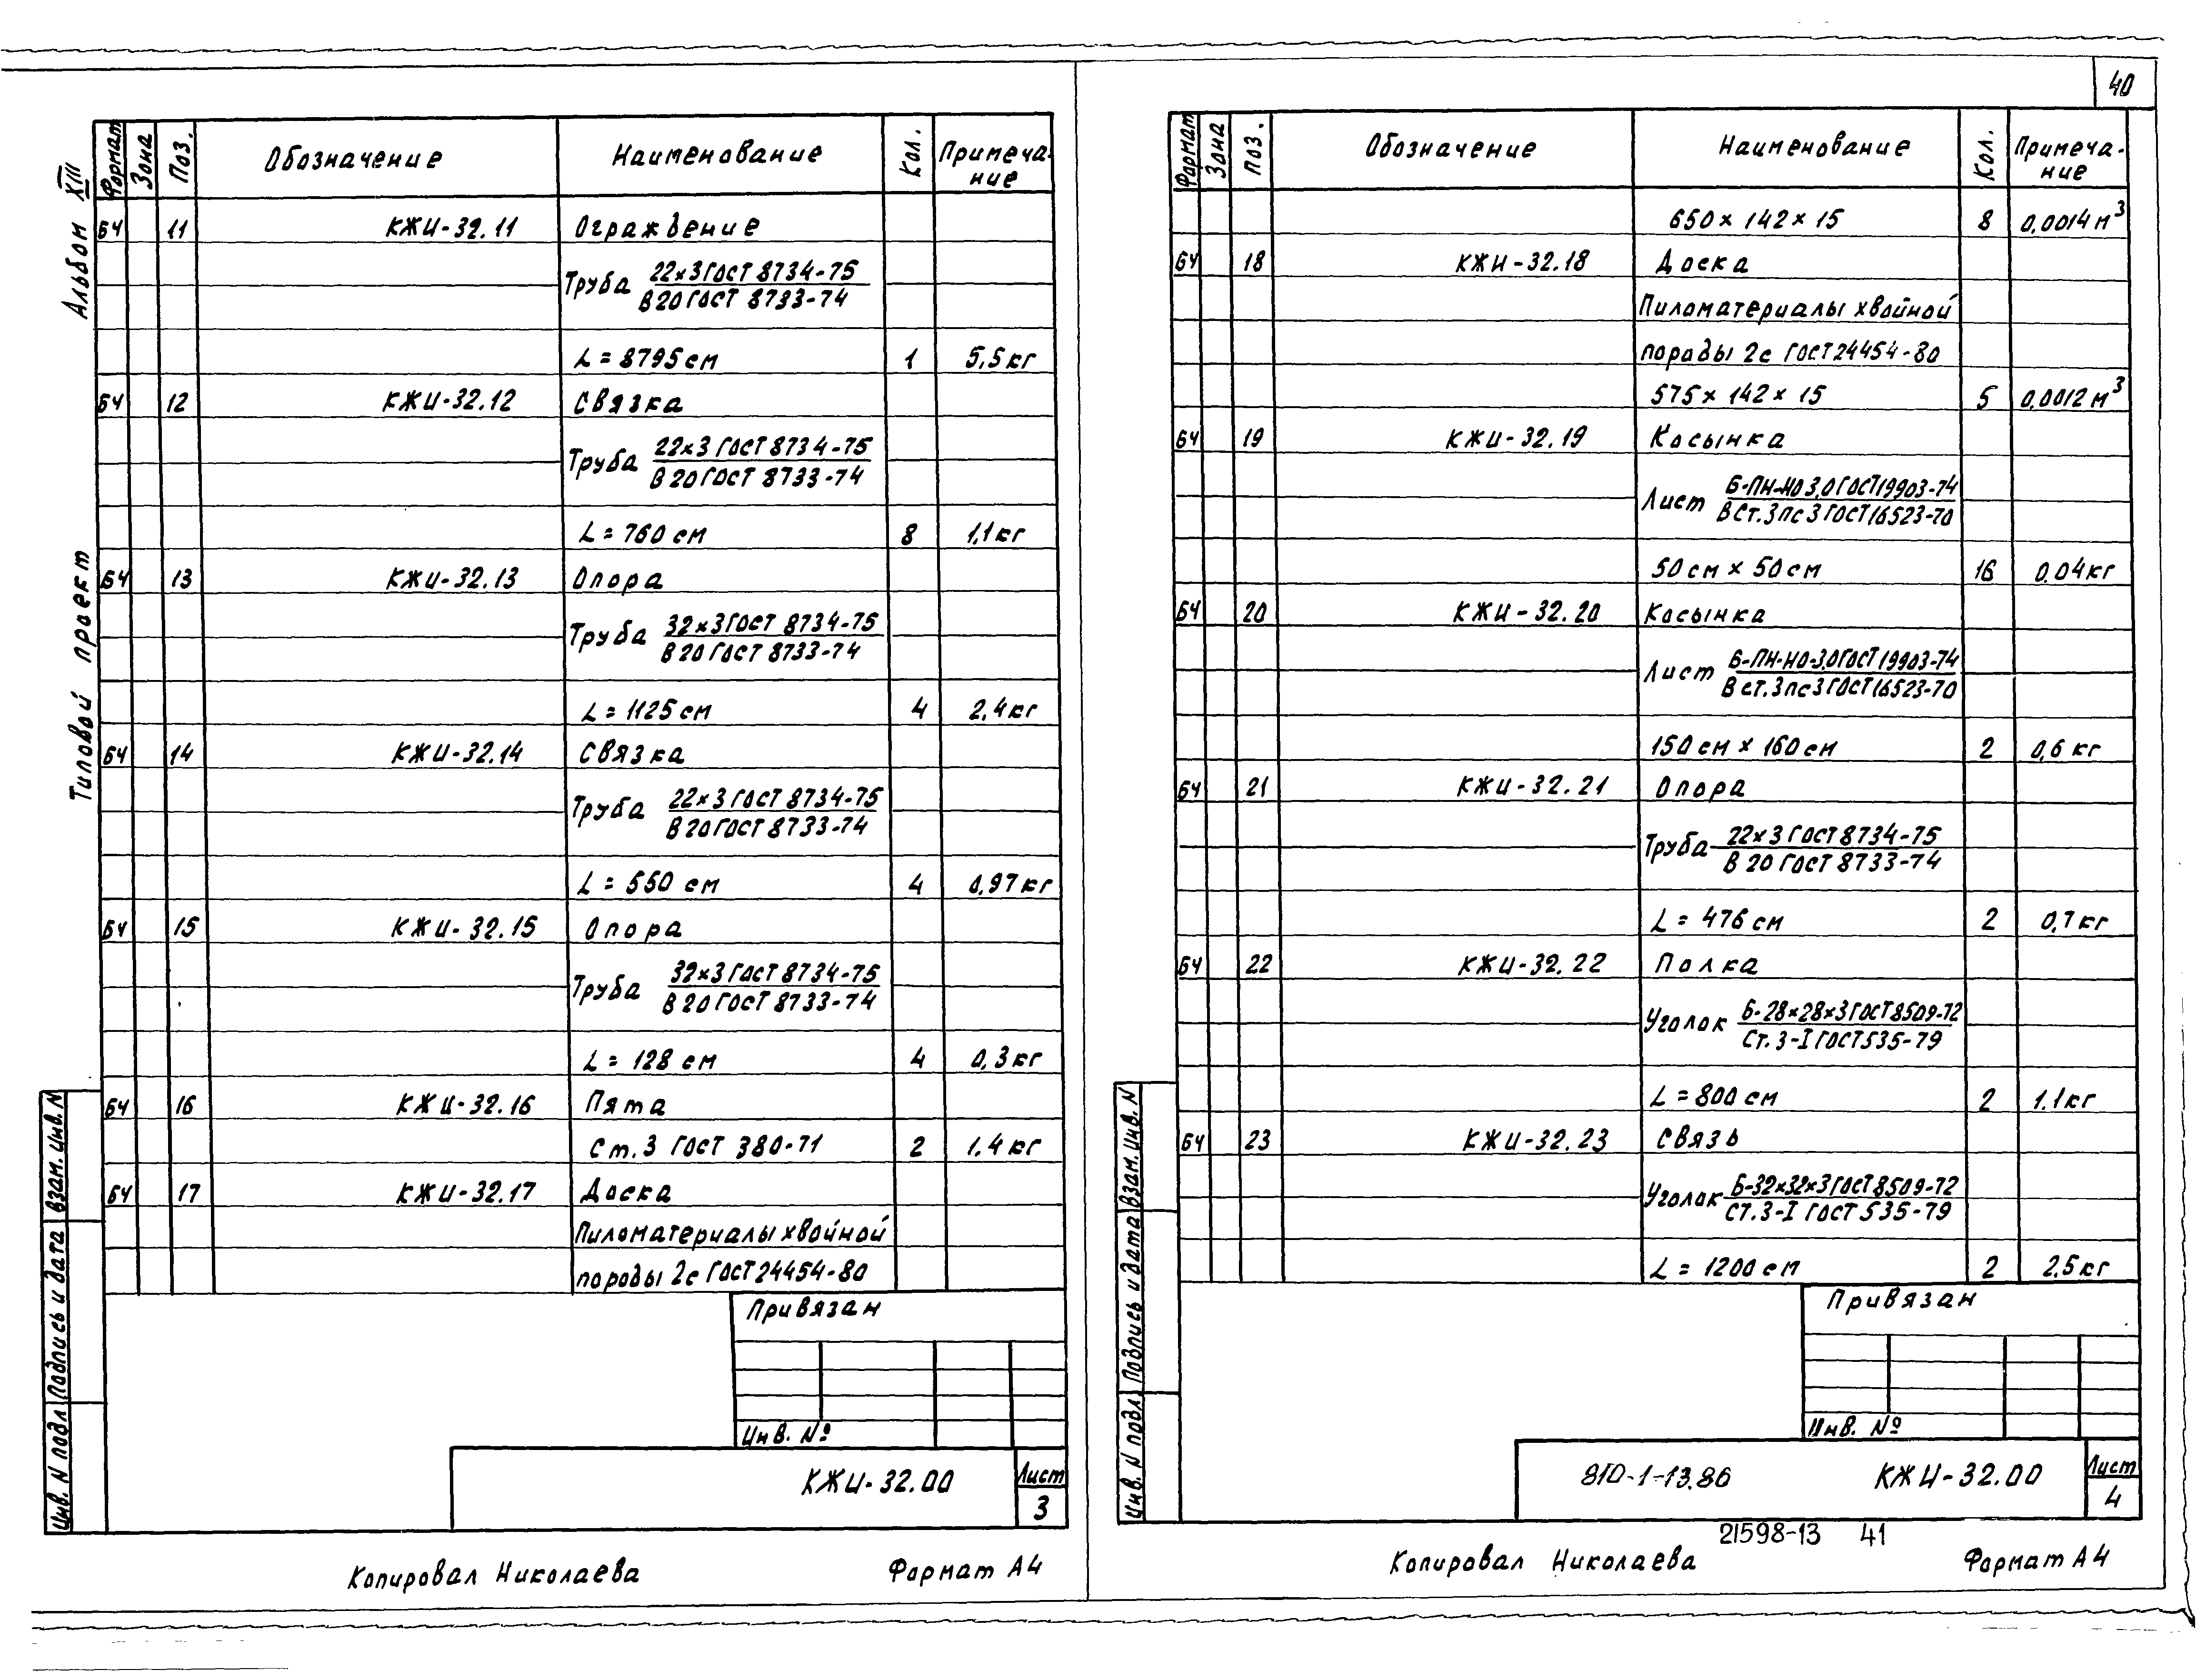 40
Альбом XIII
Типовой проект
Формат Зона Поз. Обозначение Наименование Кол. Примеча-
ние
БЧ 11 КЖИ-32.11 Ограждение
Труба 22×3 ГОСТ 8734-75
В 20 ГОСТ 8733-74
L = 8795 см 1 5,5 кг
БЧ 12 КЖИ-32.12 Связка
Труба 22×3 ГОСТ 8734-75
В 20 ГОСТ 8733-74
L = 760 см 8 1,1 кг
БЧ 13 КЖИ-32.13 Опора
Труба 32×3 ГОСТ 8734-75
В 20 ГОСТ 8733-74
L = 1125 см 4 2,4 кг
БЧ 14 КЖИ-32.14 Связка
Труба 22×3 ГОСТ 8734-75
В 20 ГОСТ 8733-74
L = 550 см 4 0,97 кг
БЧ 15 КЖИ-32.15 Опора
Труба 32×3 ГОСТ 8734-75
В 20 ГОСТ 8733-74
L = 128 см 4 0,3 кг
БЧ 16 КЖИ-32.16 Пята
Ст.3 ГОСТ 380-71 2 1.4 кг
БЧ 17 КЖИ-32.17 Доска
Пиломатериалы хвойной
породы 2с ГОСТ 24454-80
Привязан
Инв. №
КЖИ-32.00 Лист
3
Инв. N подл Подпись и дата Взам. инв. N
Копировал Николаева Формат А4
Формат Зона Поз. Обозначение Наименование Кол. Примеча-
ние
650 × 142 × 15 8 0,0014 м³
БЧ 18 КЖИ-32.18 Доска
Пиломатериалы хвойной
породы 2с ГОСТ 24454-80
575 × 142 × 15 5 0,0012 м³
БЧ 19 КЖИ-32.19 Косынка
Лист Б-ПН-НО 3,0 ГОСТ 19903-74
В Ст.3пс3 ГОСТ 16523-70
50 см × 50 см 16 0,04 кг
БЧ 20 КЖИ-32.20 Косынка
Лист Б-ПН-НО-3,0 ГОСТ 19903-74
В ст.3пс3 ГОСТ 16523-70
150 см × 160 см 2 0,6 кг
БЧ 21 КЖИ-32.21 Опора
Труба 22×3 ГОСТ 8734-75
В 20 ГОСТ 8733-74
L = 476 см 2 0,7 кг
БЧ 22 КЖИ-32.22 Полка
Уголок Б-28×28×3 ГОСТ 8509-72
Ст.3-I ГОСТ 535-79
L = 800 см 2 1.1 кг
БЧ 23 КЖИ-32.23 Связь
Уголок Б-32×32×3 ГОСТ 8509-72
СТ.3-I ГОСТ 535-79
L = 1200 см 2 2,5 кг
Привязан
Инв. №
810-1-13.86 КЖИ-32.00 Лист
4
Инв. N подл Подпись и дата Взам. инв. N
21598-13 41
Копировал Николаева Формат А4